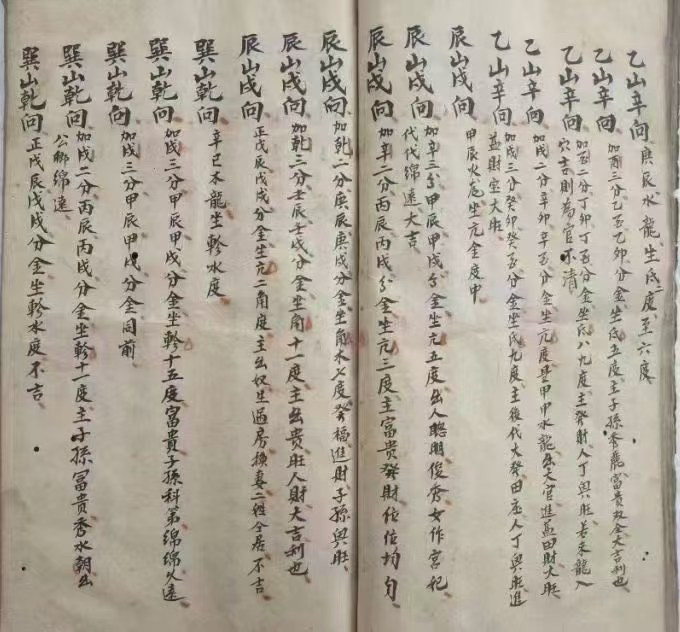 乙山辛向庚辰水龍坐氐二度至六度
乙山辛向加酉三分乙酉乙卯分金坐氐五度主子孫秀麗富貴双全大吉利也
乙山辛向加酉二分丁卯丁酉分金坐氐八九度主發財人丁興旺若未龍入
穴吉則為官不清
乙山辛向加戌二分辛卯辛酉分金坐亢度甲申水龍出大官進益田財大旺
乙山辛向加戌三分癸卯癸酉分金坐氐九度主後代大發田庄人丁興旺進
益財宝大旺
辰山戌向甲辰火龙坐亢金度甲
辰山戌向加辛三分甲辰甲戌分金坐亢五度出人聰明俊秀女作宮妃
代代綿遠大吉
辰山戌向加辛二分丙辰丙戌分金坐亢三度主富貴發財位位均匀
辰山戌向加乾二分庚辰庚戌分金坐角木七度發福進財子孫興旺
辰山戌向加乾三分壬辰壬戌分金坐角十一度主出贵旺人財大吉利也
辰山戌向正戊辰戊戌分金坐亢二角度主出奴生過房換妻二姓仝居不吉
巽山乾向辛巳木龍坐軫水度
巽山乾向加戌三分甲辰甲戌分金坐軫十五度富貴子孫科第綿綿久遠
巽山乾向加戌三分甲辰甲戌分金同前
巽山乾向加戌二分丙辰丙戌分金坐軫十一度主子孫富貴秀水朝出
公卿綿遠
巽山乾向正戊辰戊戌分金坐軫水度不吉